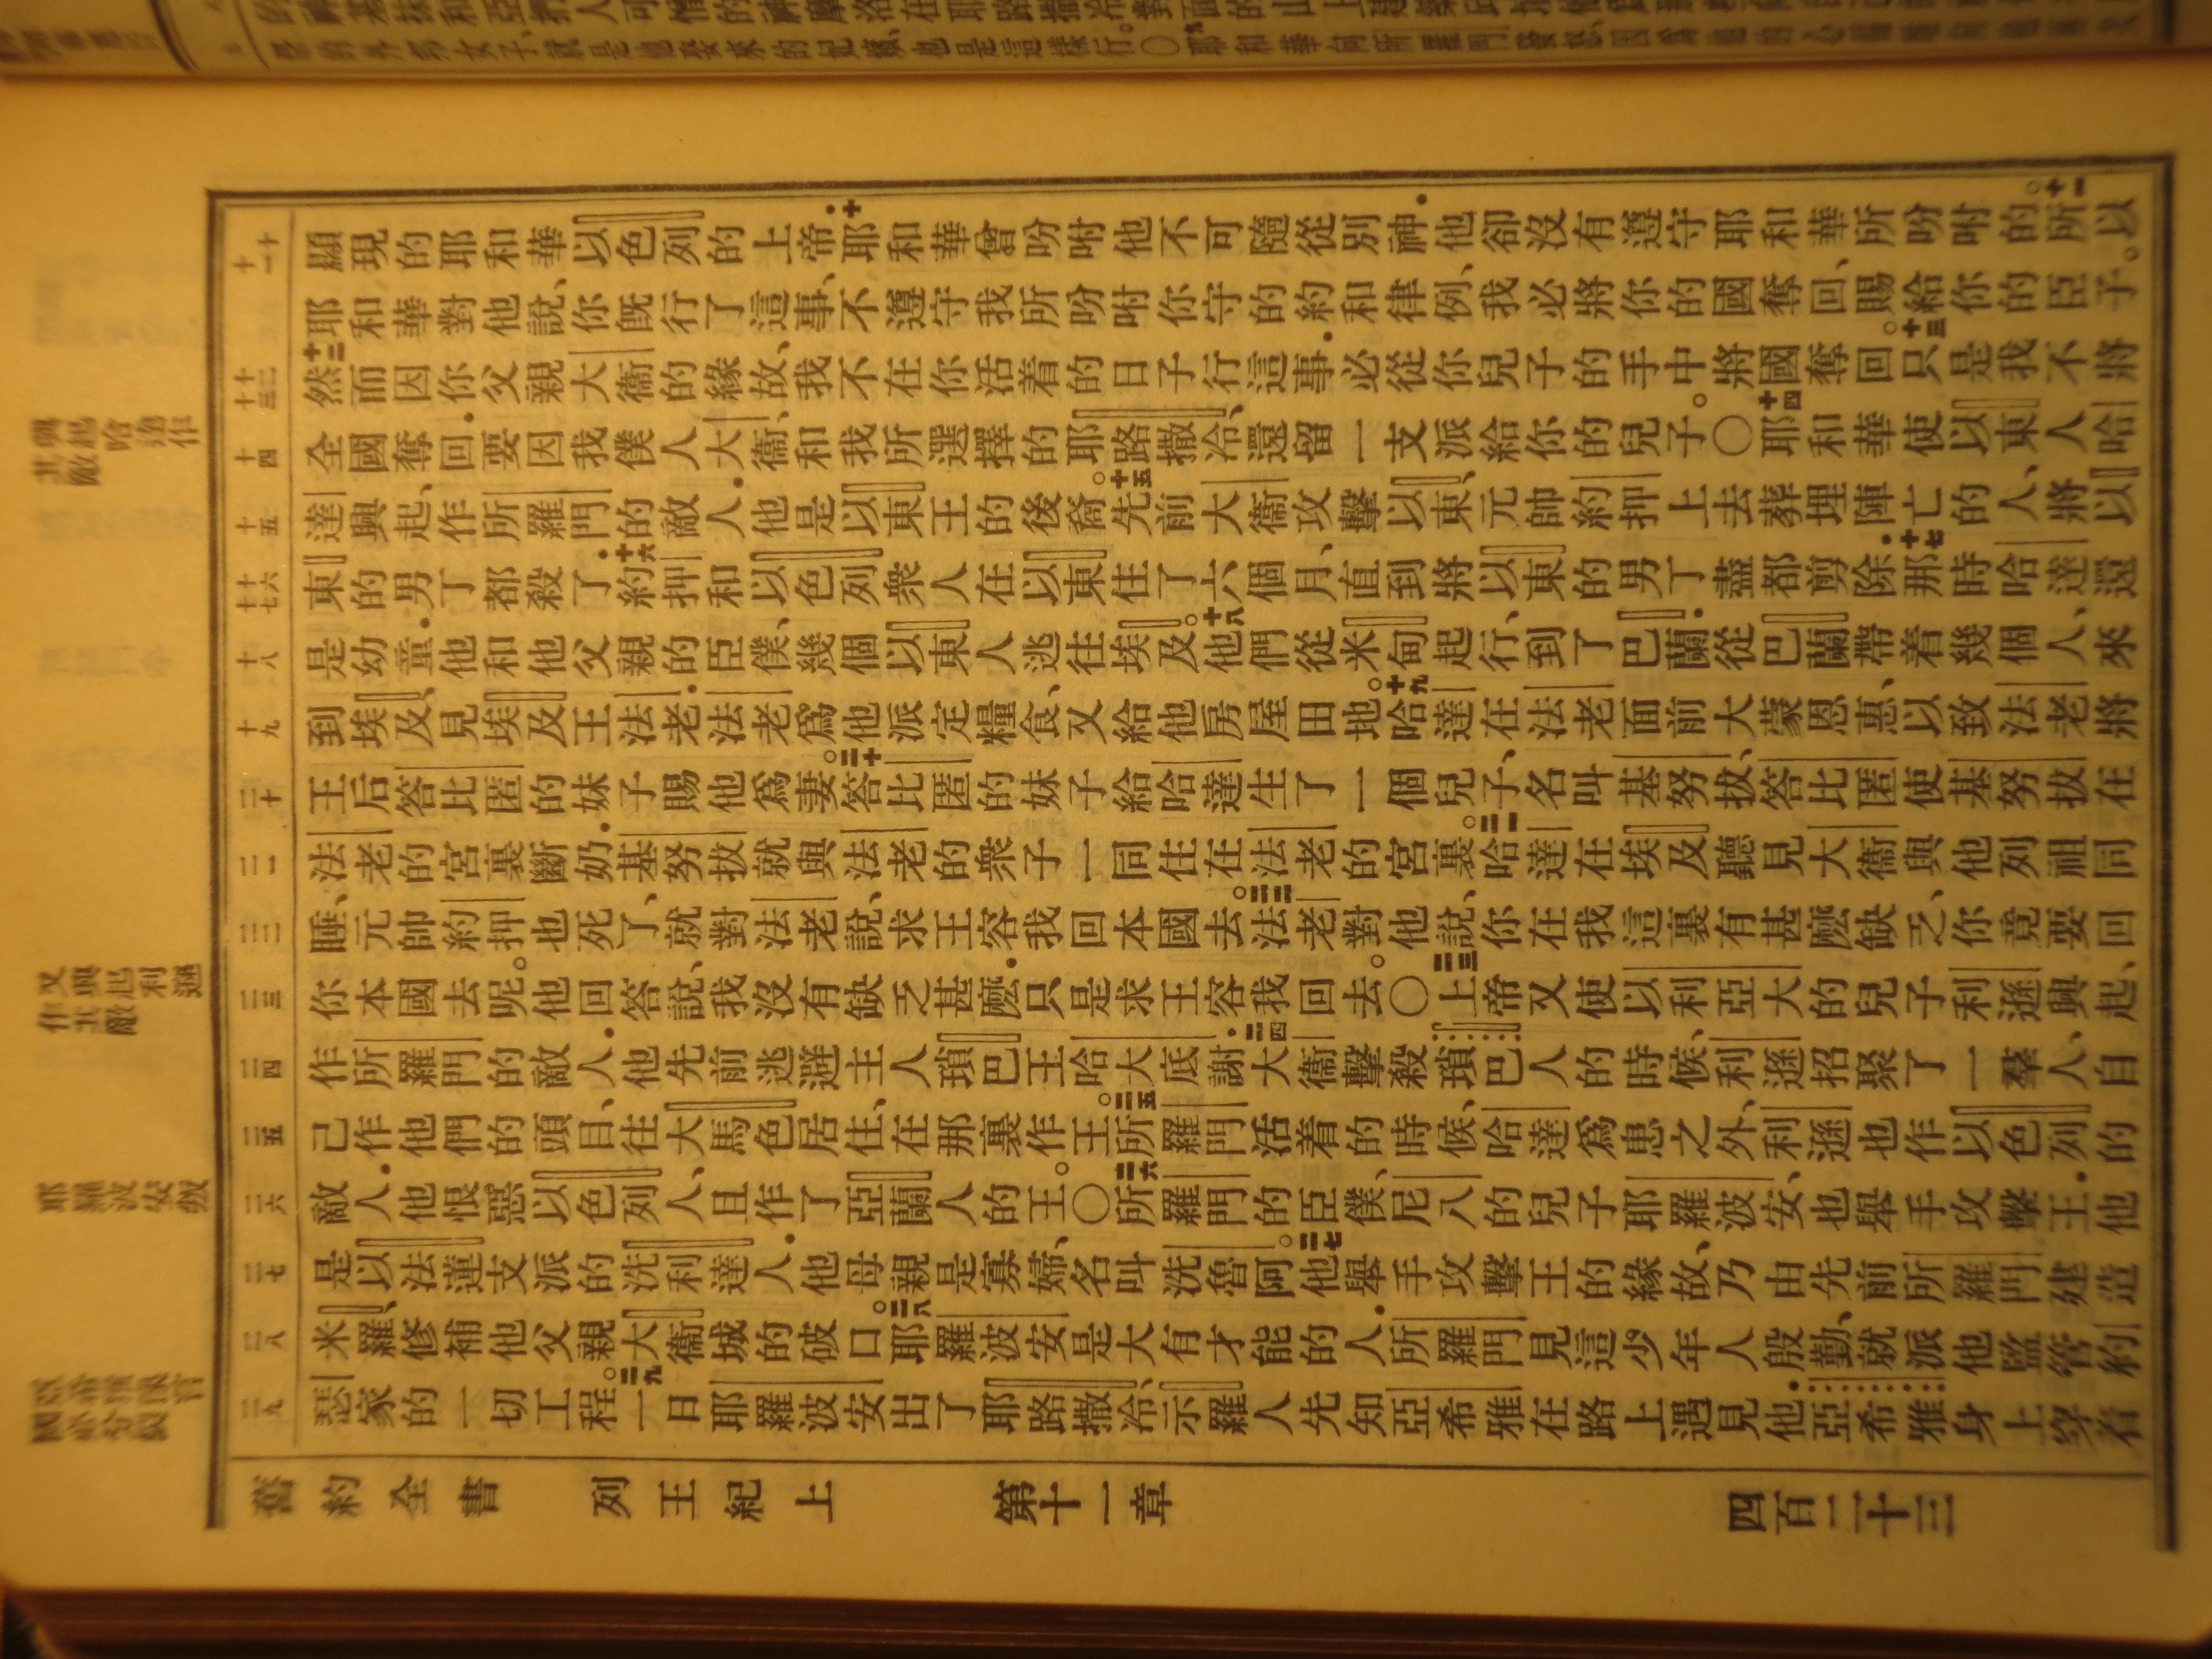 十一
十二
十三
十四
十五
十六
十七
十八
十九
二十
二一
二二
二三
二四
二五
二六
二七
二八
二九
顯現的耶和華以色列的上帝．十耶和華曾吩咐他不可隨從別神．他卻沒有遵守耶和華所吩咐的。十一所以
耶和華對他說、你既行了這事、不遵守我所吩咐你守的約和律例、我必將你的國奪回、賜給你的臣子。
十二然而因你父親大衞的緣故、我不在你活着的日子行這事．必從你兒子的手中將國奪回。十三只是我不將
全國奪回．要因我僕人大衞、和我所選擇的耶路撒冷、還留一支派給你的兒子。○十四耶和華使以東人哈
達興起、作所羅門的敵人．他是以東王的後裔。十五先前大衞攻擊以東、元帥約押上去葬埋陣亡的人、將以
東的男丁都殺了．十六約押和以色列衆人在以東住了六個月、直到將以東的男丁盡都剪除．十七那時哈達還
是幼童．他和他父親的臣僕、幾個以東人逃往埃及。十八他們從米甸起行、到了巴蘭．從巴蘭帶着幾個人、來
到埃及、見埃及王法老．法老爲他派定糧食、又給他房屋田地。十九哈達在法老面前大蒙恩惠、以致法老將
王后答比匿的妹子賜他爲妻。二十答比匿的妹子給哈達生了一個兒子、名叫基努拔、答比匿使基努拔在
法老的宮裏斷奶．基努拔就與法老的衆子一同住在法老的宮裏。二一哈達在埃及聽見大衞與他列祖同
睡、元帥約押也死了、就對法老說、求王容我回本國去。二二法老對他說、你在我這裏有甚麼缺乏、你竟要回
你本國去呢。他回答說、我沒有缺乏甚麼．只是求王容我回去。○二三上帝又使以利亞大的兒子利遜興起、
作所羅門的敵人．他先前逃避主人瑣巴王哈大底謝．二四大衞擊殺瑣巴人的時候、利遜招聚了一羣人、自
己作他們的頭目、往大馬色居住、在那裏作王。二五所羅門活着的時候、哈達爲患之外、利遜也作以色列的
敵人．他恨惡以色列人、且作了亞蘭人的王。○二六所羅門的臣僕、尼八的兒子耶羅波安、也舉手攻擊王．他
是以法蓮支派的洗利達人．他母親是寡婦、名叫洗魯阿。二七他舉手攻擊王的緣故、乃由先前所羅門建造
米羅、修補他父親大衞城的破口。二八耶羅波安是大有才能的人．所羅門見這少年人殷勤、就派他監管約
瑟家的一切工程。二九一日耶羅波安出了耶路撒冷、示羅人先知亞希雅在路上遇見他．亞希雅身上穿着
舊約全書 列王紀上 第十一章 四百二十三
興起哈達作
其敵
又興起利遜
作其敵
耶羅波安叛